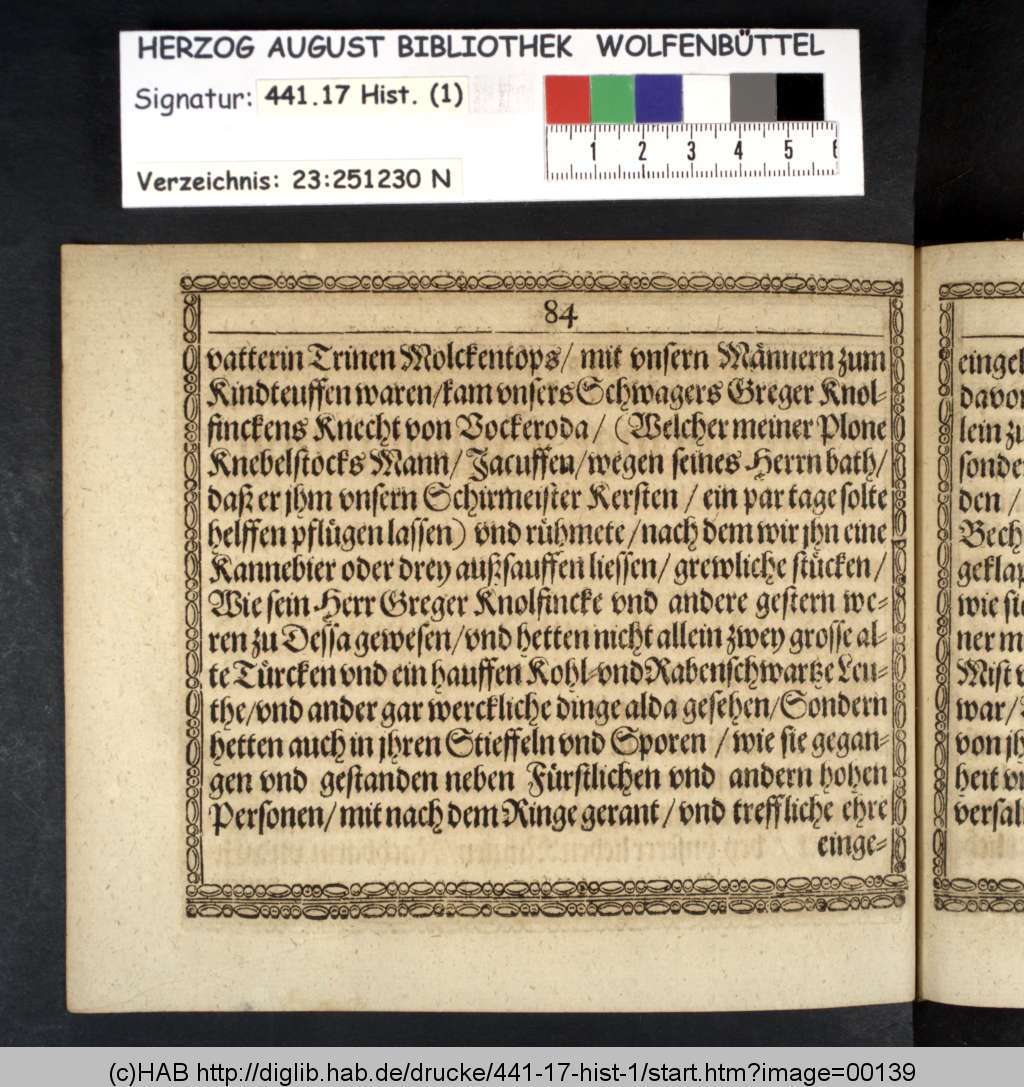 HERZOG AUGUST BIBLIOTHEK WOLFENBÜTTEL
Signatur: 441.17 Hist. (1)
Verzeichnis: 23:251230 N
1 2 3 4 5 6
84
vatterin Trinen Molckentops/ mit vnsern Männern zum
Kindteuffen waren/kam vnsers Schwagers Greger Knol-
finckens Knecht von Vockeroda/ (Welcher meiner Plone
Knebelstocks Mann/ Jacuffen/wegen seines Herrn bath/
daß er jhm vnsern Schirmeister Kersten / ein par tage solte
helffen pflügen lassen) vnd rühmete/nach dem wir jhn eine
Kannebier oder drey außsauffen liessen/ grewliche stücken/
Wie sein Herr Greger Knolfincke vnd andere gestern we-
ren zu Dessa gewesen/vnd hetten nicht allein zwey grosse al-
te Türcken vnd ein hauffen Kohl-vnd Rabenschwartze Leu-
the/vnd ander gar werckliche dinge alda gesehen/Sondern
hetten auch in jhren Stieffeln vnd Sporen / wie sie gegan-
gen vnd gestanden neben Fürstlichen vnd andern hohen
Personen/ mit nach dem Ringe gerant/ vnd treffliche ehre
einge-
eingel
davon
lein zu
sonde
den /
Bech
geklap
wie sie
ner m
Mist v
war/
von jh
heit v
versal
(c)HAB http://diglib.hab.de/drucke/441-17-hist-1/start.htm?image=00139